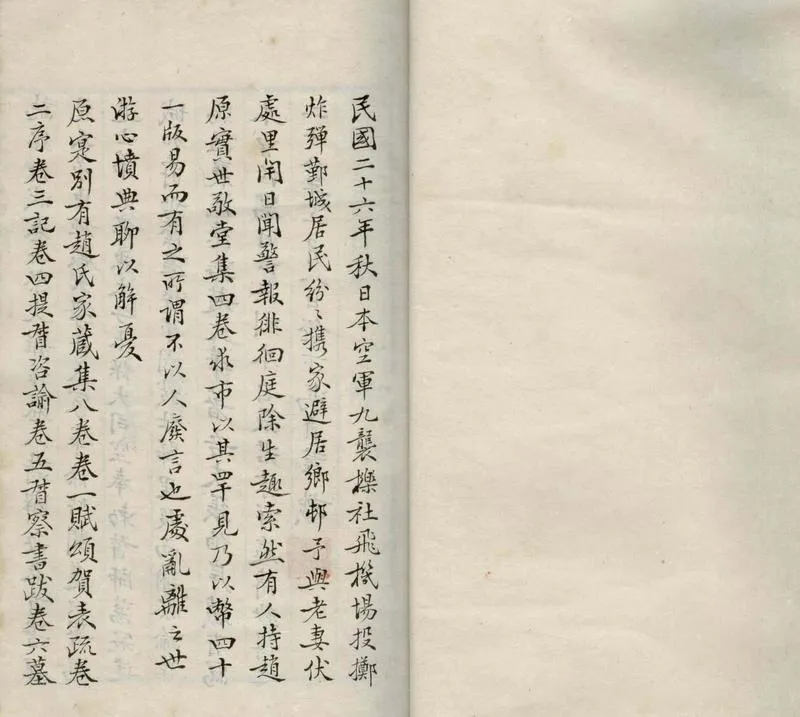 民國二十六年秋日本空軍九襲櫟社飛機場投擲
炸彈鄞城居民紛〻携家避居鄉邨予與老妻伏
處里閈日聞警報徘徊庭除生趣索然有人持趙
原實世敬堂集四卷求市以其罕見乃以幣四十
一版易而有之所謂不以人廢言也處亂離之世
游心墳典聊以解憂
原寔別有趙氏家藏集八卷卷一賦頌賀表疏卷
二序卷三記卷四提督咨諭卷五督察書跋卷六墓